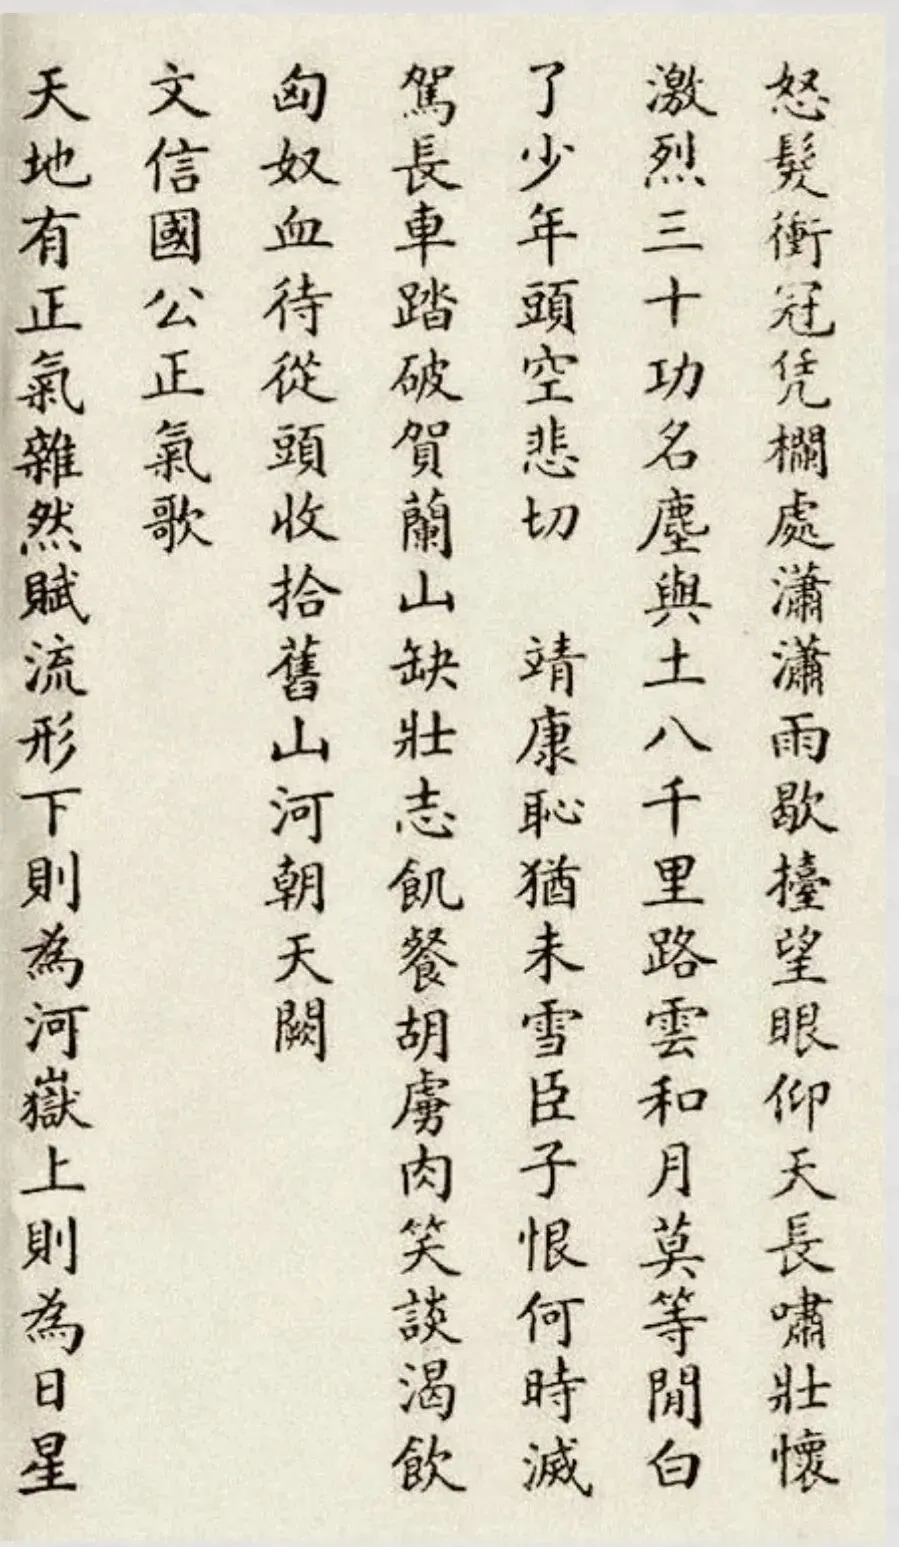 怒髮衝冠凭欄處瀟瀟雨歇擡望眼仰天長嘯壯懷
激烈三十功名塵與土八千里路雲和月莫等閒白
了少年頭空悲切　靖康恥猶未雪臣子恨何時滅
駕長車踏破賀蘭山缺壯志飢餐胡虜肉笑談渴飲
匈奴血待從頭收拾舊山河朝天闕
文信國公正氣歌
天地有正氣雜然賦流形下則為河嶽上則為日星